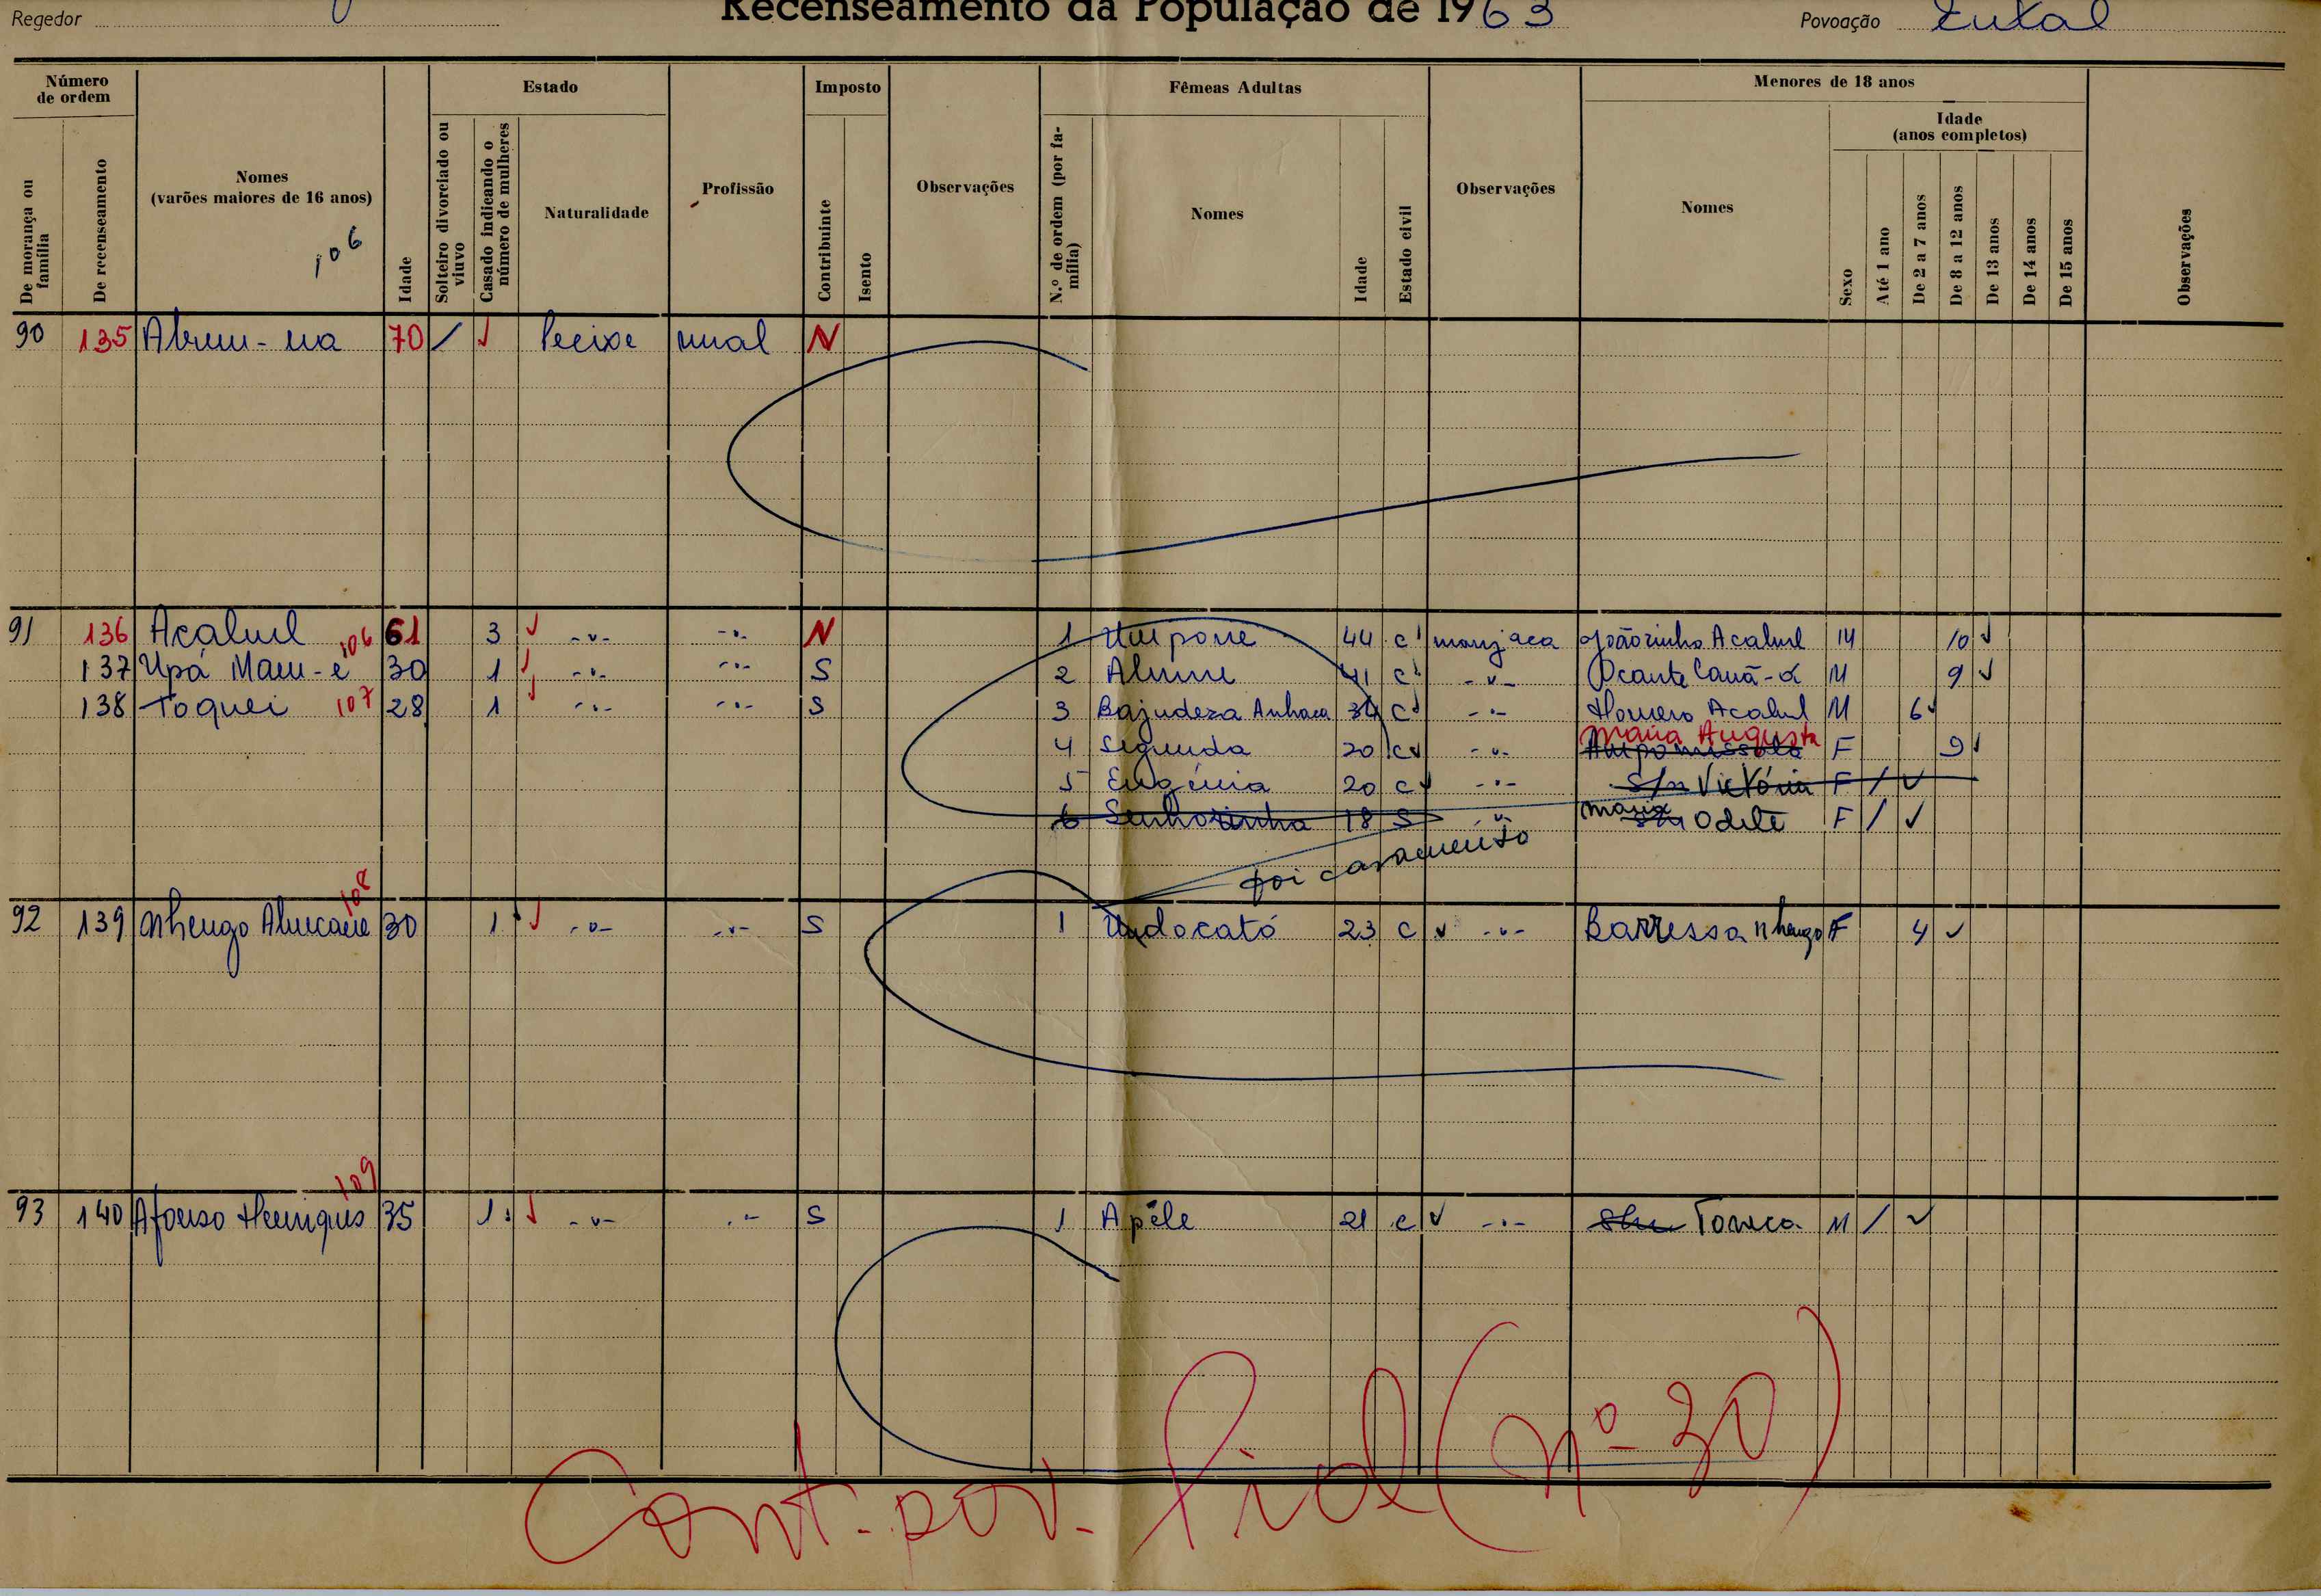 Regedor
Recenseamento da População de 1963
Povoação
Número de ordem
De morança ou família
De recenseamento
Nomes
(varões maiores de 16 anos)
106
Idade
Estado
Solteiro divorciado ou viuvo
Casado indicando o número de mulheres
Naturalidade
Profissão
Imposto
Contribuinte
Isento
Observações
Fêmeas Adultas
N.º de ordem (por família)
Nomes
Idade
Estado civil
Observações
Menores de 18 anos
Nomes
Sexo
Idade
(anos completos)
Até 1 ano
De 2 a 7 anos
De 8 a 12 anos
De 13 anos
De 14 anos
De 15 anos
Observações
90 135 70 / Pecixe N
91 136 Acalul 106 61 3 -"- -"- N 1 44 c manjaca Joãozinho Acalul M 10
137 Upá Mam-é 30 1 -"- -"- S 2 41 c -"- Ocante Canã-a M 9
138 Toquei 107 28 1 -"- -"- S 3 Bajudeza Anhaca c -"- Homero Acalul M 6
4 Segunda 20 c -"- Maria Augusta F 9
5 Eugénia 20 c -"- s/n Victória F /
6 Senhorinha 18 S -"- Maria s/n Odete F /
foi casamento
108
92 139 Nhengo 30 1 -"- -"- S 1 Undocató 23 c -"- Barressa Nhengo F 4
109
93 140 Afonso Henriques 35 1 -"- -"- S 1 Apéle 21 c -"- Toneca M /
Cont. pov. (nº 30)